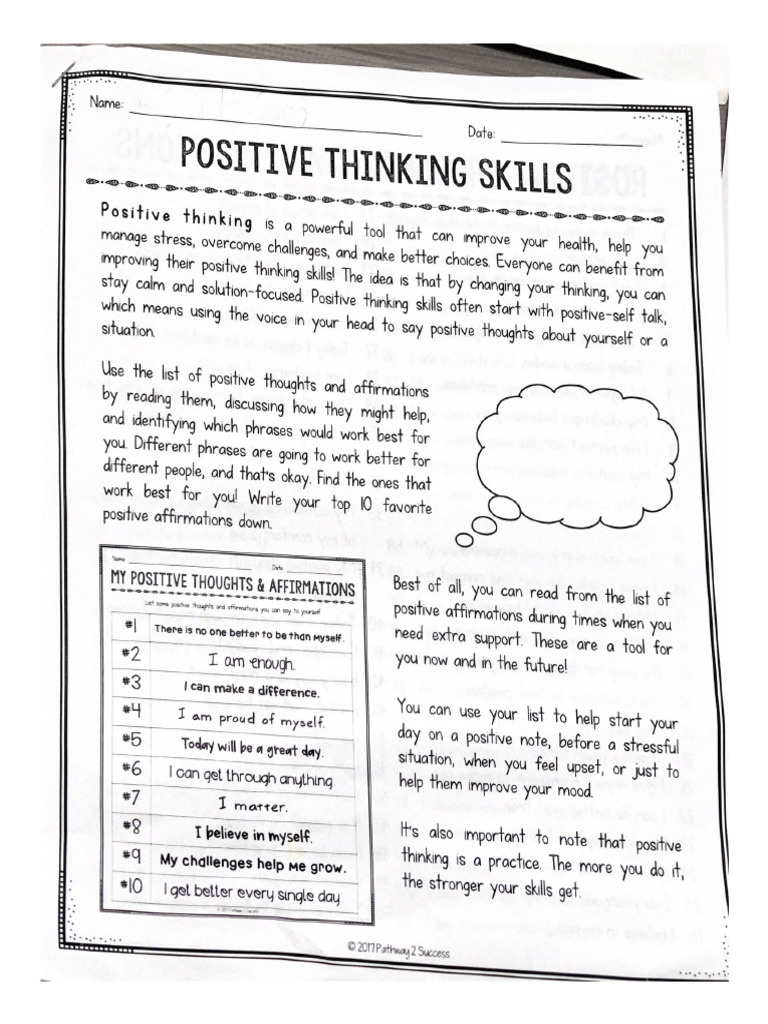 Name:
Date:
POSITIVE THINKING SKILLS
Positive thinking is a powerful tool that can improve your health, help you
manage stress, overcome challenges, and make better choices. Everyone can benefit from
improving their positive thinking skills! The idea is that by changing your thinking, you can
stay calm and solution-focused. Positive thinking skills often start with positive-self talk,
which means using the voice in your head to say positive thoughts about yourself or a
situation.
Use the list of positive thoughts and affirmations
by reading them, discussing how they might help,
and identifying which phrases would work best for
you. Different phrases are going to work better for
different people, and that's okay. Find the ones that
work best for you! Write your top 10 favorite
positive affirmations down.
Name
Date
MY POSITIVE THOUGHTS & AFFIRMATIONS
List some positive thoughts and affirmations you can say to yourself
#1 There is no one better to be than myself.
#2 I am enough.
#3 I can make a difference.
#4 I am proud of myself.
#5 Today will be a great day.
#6 I can get through anything
#7 I matter.
#8 I believe in myself.
#9 My challenges help me grow.
#10 I get better every single day
Best of all, you can read from the list of
positive affirmations during times when you
need extra support. These are a tool for
you now and in the future!
You can use your list to help start your
day on a positive note, before a stressful
situation, when you feel upset, or just to
help them improve your mood.
It's also important to note that positive
thinking is a practice. The more you do it,
the stronger your skills get.
© 2017 Pathway 2 Success